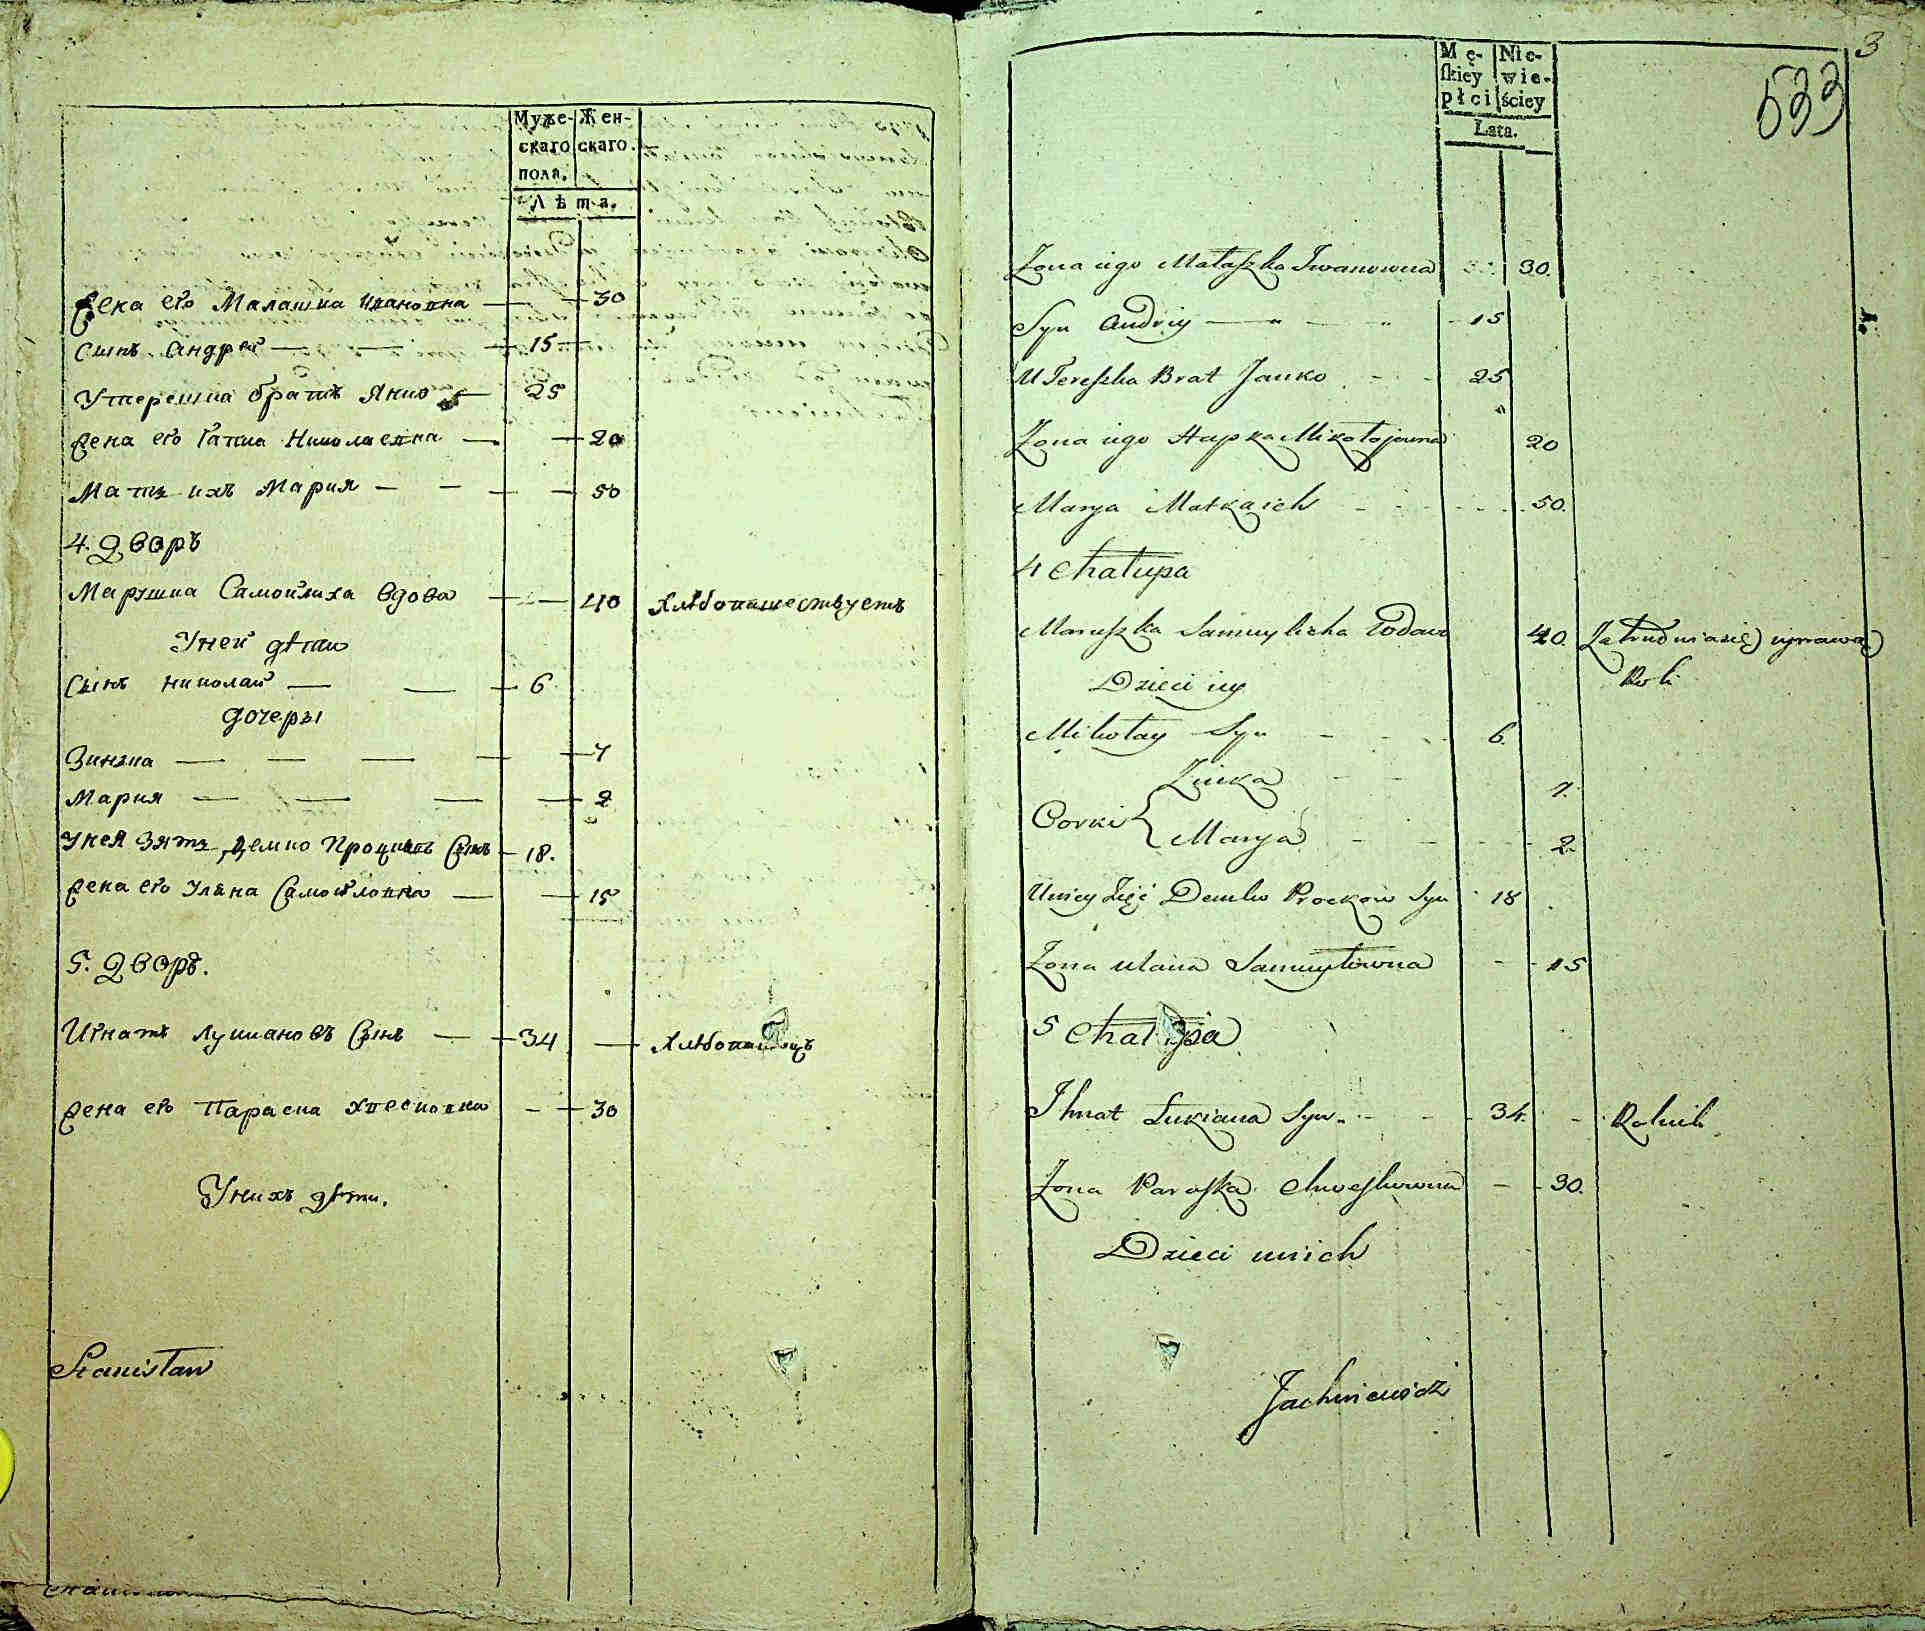 Муже- Жен-
скаго скаго.
пола.
Лѣта.
Жена его Малашка Ивановна 30
Сынъ Андрей 15
У терешка братъ Янко 25
Жена его Гапка Николаевна 20
Мать ихъ Мария 50
4. Дворъ
Марушка Самойлиха вдова 40 Хлѣбопашествуетъ
У ней дѣти
Сынъ Николай 6
дочеры
Зинька 7
Мария 2
У ней зять, Демко Процковъ сынъ 18.
Жена его Уляна Самойловна 15
5. Дворъ.
Игнатъ Лукиановъ сынъ 34 Хлѣбопашецъ
Жена его Параска Хвесковна 30
У нихъ дѣти.
Stanisław
3
533
Mę- Nie-
skiey wie-
płci ściey
Lata.
Zona iego Małaszka Iwanowna 30.
Syn Andriy 15
U Tereszka Brat Janko 25
Zona iego Hapka Mikołajowna 20
Marya Matka ich 50.
4 Chałupa
Maruszka Samuylicha Wdowa 40. Zatrudnia się uprawą
Roli
Dzieci iey
Mikołay Syn 6.
Zinka 7.
Corki
Marya 2.
U niey Zięć Demko Prockow Syn 18
Zona Ulana Samuyłowna 15
5 Chałupa
Ihnat Łukiana Syn 34. Rolnik
Zona Paraska Chweskowna 30.
Dzieci u nich
Jachniewicz